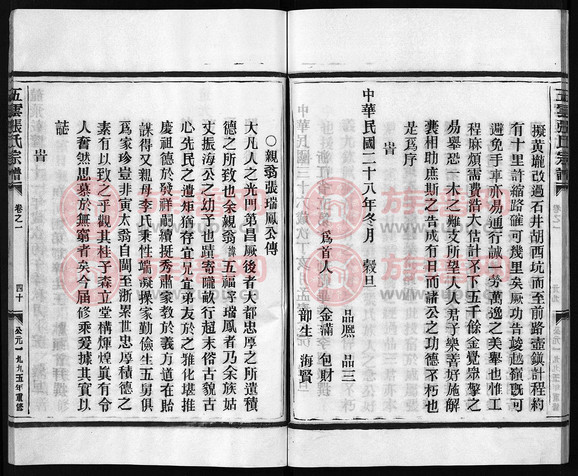 擬黃巃改過石井胡西坑而至前路壺鎮計程約
有十里許縮路確可幾里矣厥功告竣越嶺既可
避免手車亦易通行誠一勞萬逸之美舉也惟工
程麻煩需費浩大估計不下五千餘金覺眾擎之
易舉恐一木之難支所望人人君子樂善好施解
囊相助庶斯之告成有日而諸公之功德不朽也
是爲序
旹
中華民國二十八年冬月 穀旦
爲首人
品熈 品三
金滿 包財
御生 海賢
五雲張氏宗譜
卷之一
四十
公元一九九五年重修
○親翁張瑞鳳公傳
大凡人之光門第昌厥後者大都忠厚之所遺積
德之所致也余親翁諱五福字瑞鳳者乃余族姑
丈振海公之幼子也蹟寄隴畝行超末俗古貌古
心先民之遺矩猶存宜兄宜弟友於之雅化堪推
慶祖德於發祥嗣續挺秀肅家教於義方道在貽
謀得又親母李氏秉性端凝操家勤儉生五男俱
爲家珍豈非寅太翁自閩至浙累世忠厚積德之
素有以致之乎觀其桂子森立堂構輝煌眞有令
人奮然思慕於無窮者矣今届修乘爰據其實以
誌
旹